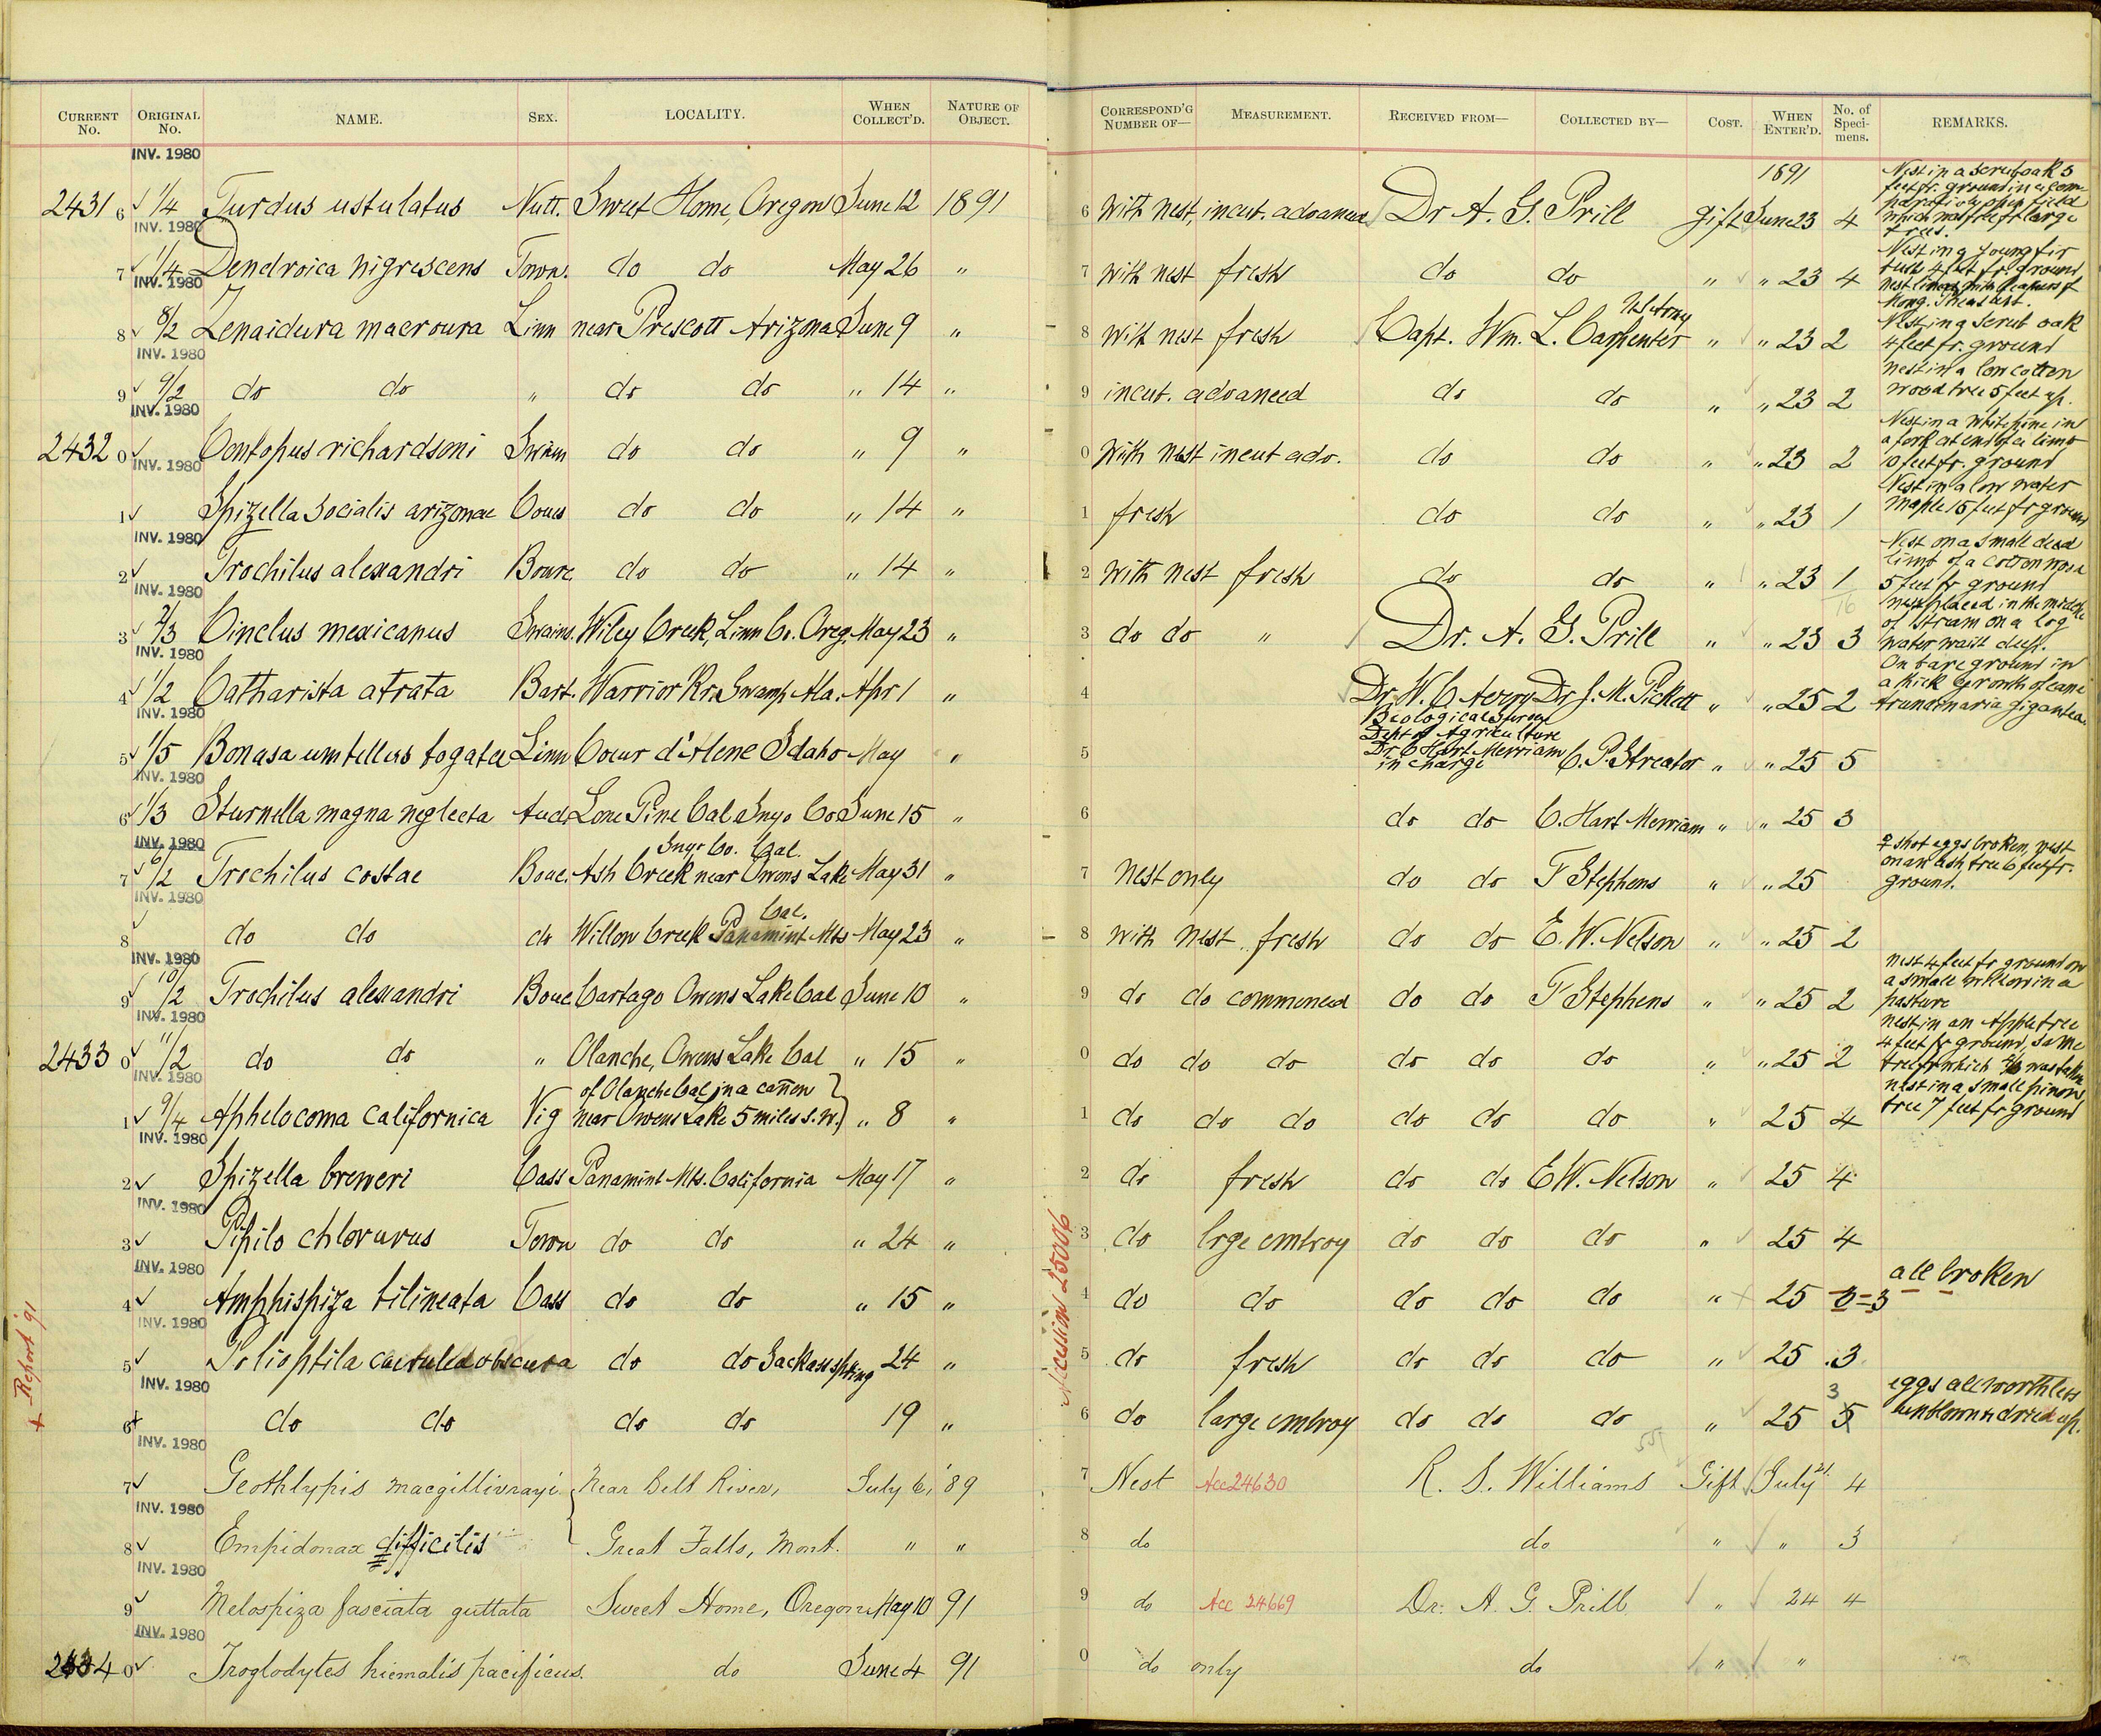 CURRENT No. ORIGINAL No. NAME. SEX. LOCALITY. WHEN COLLECT'D. NATURE OF OBJECT. CORRESPOND'G NUMBER OF— MEASUREMENT. RECEIVED FROM— COLLECTED BY— COST. WHEN ENTER'D. No. of Specimens. REMARKS.
INV. 1980
1891
2431 6 ✓ 1/4 Turdus ustulatus Nutt. Sweet Home, Oregon June 12 1891 6 With nest, incut. advanced Dr A. G. Prill gift June 23 4 Nest in a scrub oak 5 feet fr. ground in a open field which was free fr large trees.
INV. 1980
7 ✓ 1/4 Dendroica nigrescens Towns. do do May 26 " 7 With nest fresh do do " " 23 4 Nest in a young fir bush 4 feet fr. ground nest lined with feathers of Mong. Pheasant.
INV. 1980
8 ✓ 8/2 Zenaidura macroura Linn near Prescott Arizona June 9 " 8 With nest fresh Capt. Wm. L. Carpenter US Army " " 23 2 Nest in g scrub oak 4 feet fr. ground
INV. 1980
9 ✓ 9/2 do do " do do " 14 " 9 incut. advanced do do " " 23 2 nest in a low cotton wood tree 5 feet up.
INV. 1980
2432 0 ✓ Contopus richardsoni Swain do do " 9 " 0 With nest incut adv. do do " " 23 2 Nest in a white pine in a fork at end of a limb feet fr. ground
INV. 1980
1 ✓ Spizella socialis arizonae Coues do do " 14 " 1 fresh do do " " 23 1 Nest in a low water maple 15 feet fr ground
INV. 1980
2 ✓ Trochilus alexandri Bourc do do " 14 " 2 With nest fresh do do " " 23 1 Nest on a small dead limb of a cottonwood 5 feet fr ground
INV. 1980
16
3 ✓ 2/3 Cinclus mexicanus Swains. Wiley Creek, Linn Co. Oreg. May 23 " 3 do do " Dr. A. G. Prill " " 23 3 nest placed in the middle of stream on a log water waist deep.
INV. 1980
4 ✓ 1/2 Catharista atrata Bart. Warrior Rr. Swamp Ala. Apr 1 " 4 Dr. W. C Avery Dr J. M. Pickett " " 25 2 On bare ground in a thick growth of cane Arundinaria gigantea.
INV. 1980
5 ✓ 1/5 Bonasa umbellus togata Linn Coeur d'Alene Idaho May " 5 Biological Survey Dept of Agriculture Dr. C Hart Merriam in charge C. P. Streator " " 25 5
INV. 1980
6 ✓ 1/3 Sturnella magna neglecta Aud. Lone Pine Cal Inyo Co June 15 " 6 do do C. Hart Merriam " " 25 3
INV. 1980
7 6/2 Trochilus costae Bouc. Ash Creek near Owens Lake Inyo Co. Cal. May 31 " 7 nest only do do F Stephens " " 25 ♀ shot eggs broken, nest on an ash tree 6 feet fr. ground.
INV. 1980
8 ✓ do do do Willow Creek Panamint Mts Cal. May 23 " 8 with nest. fresh do do E. W. Nelson " " 25 2
INV. 1980
9 ✓ 10/2 Trochilus alexandri Bouc Cartago Owens Lake Cal June 10 " 9 do do commenced do do F Stephens " " 25 2 nest 4 feet fr ground on a small willow in a pasture
INV. 1980
2433 0 ✓ 11/2 do do " Olanche, Owens Lake Cal " 15 " 0 do do do do do do " " 25 2 nest in an Apple tree 4 feet fr ground, same tree fr which was taken
INV. 1980
1 ✓ 9/4 Aphelocoma californica Vig of Olanche Cal in a cañon near Owens Lake 5 miles S.W. } " 8 " 1 do do do do do do " 25 4 nest in a small pinon tree 7 feet fr ground
INV. 1980
2 ✓ Spizella breweri Cass Panamint Mts. California May 17 " 2 do fresh do do E W. Nelson " 25 4
INV. 1980
3 ✓ Pipilo chlorurus Town do do " 24 " 3 do lrge embroy do do do " 25 4
INV. 1980
4 ✓ Amphispiza bilineata Cass do do " 15 " 4 do do do do do " 25 0=3 all broken
INV. 1980
5 ✓ Polioptila caerulea obscura do do Jackass spring 24 " 5 do fresh do do do " 25 3
INV. 1980
6 + do do do do 19 " 6 do large embroy do do do " 25 5 3 eggs all worthless unblown & dried up.
INV. 1980
7 ✓ Geothlypis macgillivrayi { Near Belt River, July 6, '89 7 Nest Acc 24630 R. S. Williams Gift July 21. 4
INV. 1980
8 ✓ Empidonax difficilis Great Falls, Mont. " " 8 do do " " 3
INV. 1980
9 ✓ Melospiza fasciata guttata Sweet Home, Oregon May 10 91 9 do Acc 24669 Dr. A. G. Prill " 24 4
INV. 1980
2434 0 ✓ Troglodytes hiemalis pacificus. do June 4 91 0 do only do " "
+ Report 91
Accession 25006